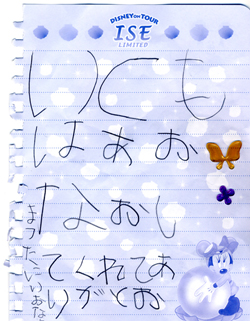 DISNEY ON TOUR
ISE
LIMITED
いくも
はあお
なおし
てくれてあ
りがとお